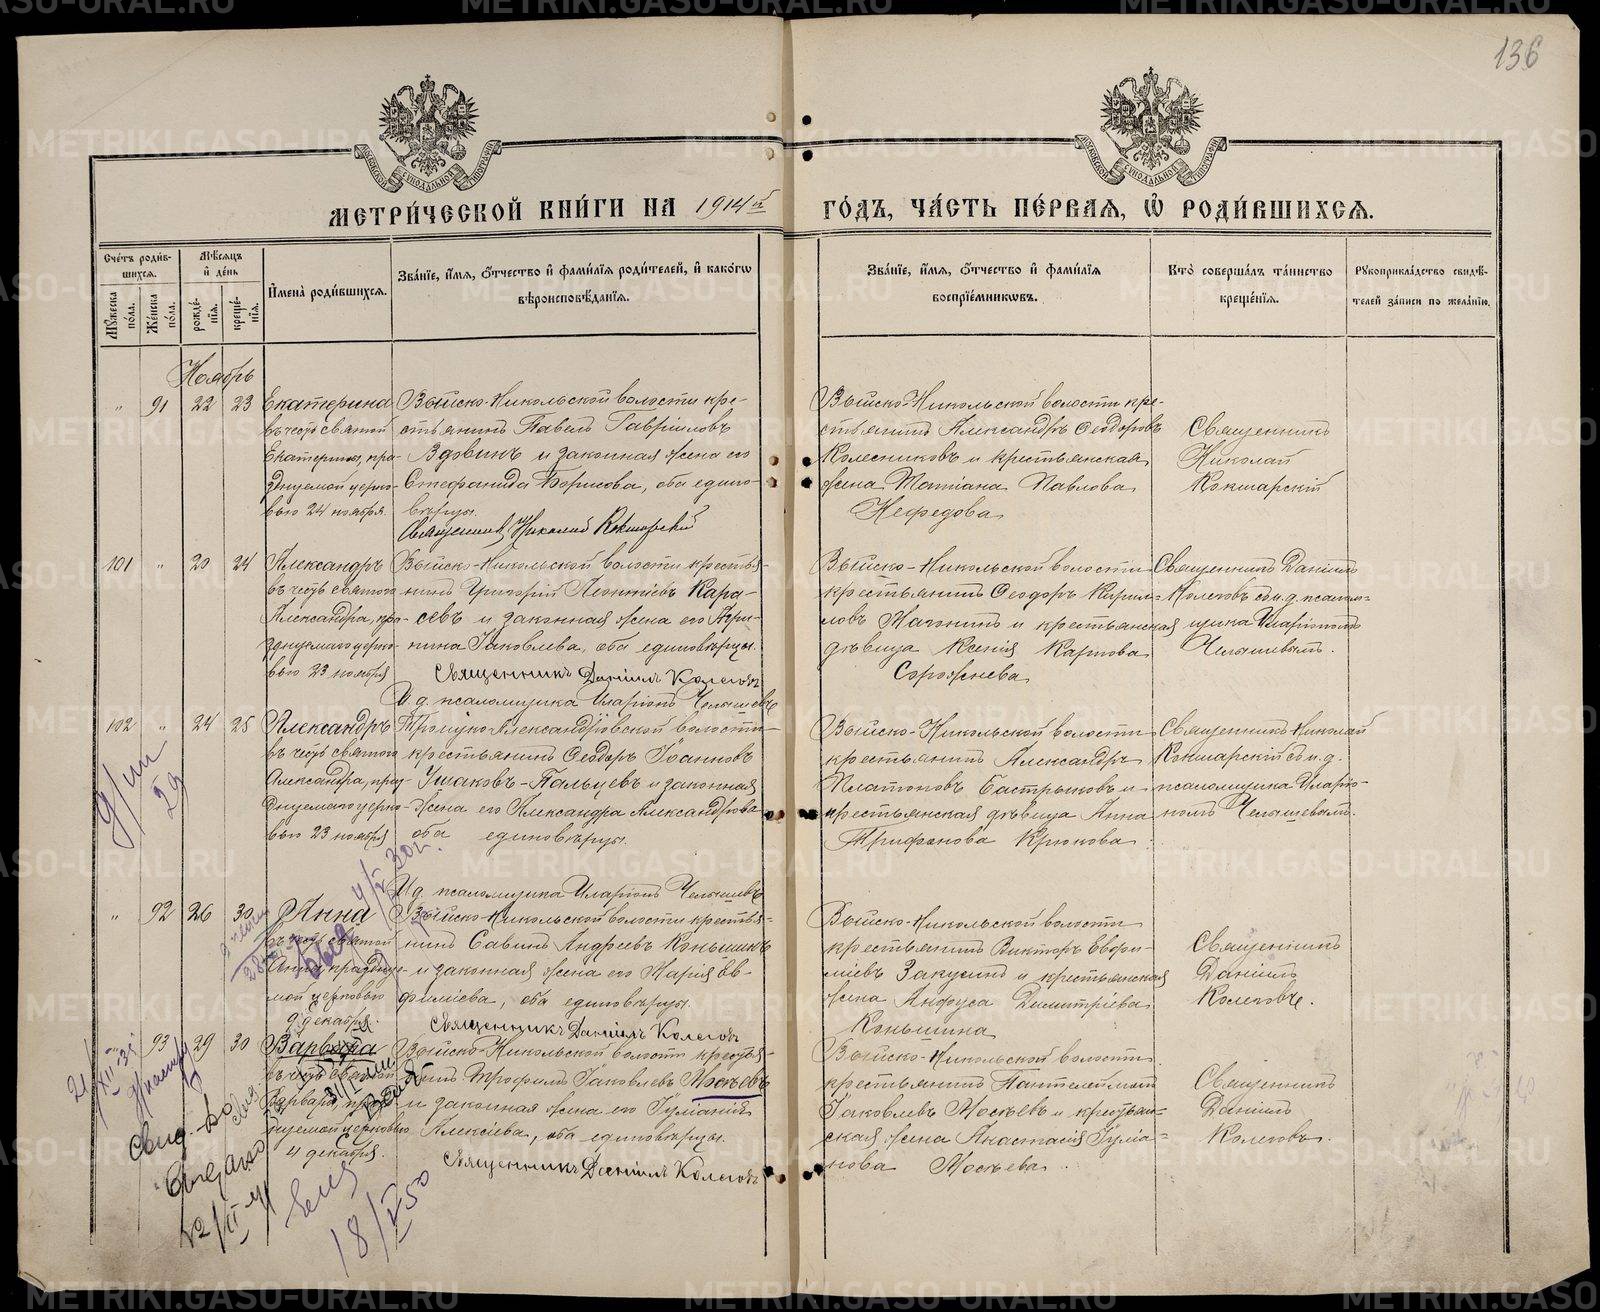 136
МОСКОВСКОЙ СѴНОДАЛЬНОЙ ТИПОГРАФІИ
МЕТРИ́ЧЕСКОЙ КНИ́ГИ НА 1914й
ГО́ДЪ, ЧА́СТЬ ПЕ́РВАЯ, Ѽ РОДИ́ВШИХСЯ.
Сче́тъ роди́в-
шихся.
Мꙋ́жеска по́ла.
Же́нска по́ла.
Мѣ́сяцъ и҆ де́нь
рожде́-
нія.
креще́-
нія.
И҆мена̀ роди́вшихся.
Зва́нїе, и҆́мя, ѻ҆́тчество и҆ фами́лїя роди́телей, и҆ како́гѡ
вѣроисповѣ́данїя.
Зва́нїе, и҆́мя, ѻ҆́тчество и҆ фами́лїя
воспрїе́мникѡвъ.
Кто̀ соверша́лъ та́инство
креще́нїя.
Рꙋкоприкла́дство свидѣ́-
телей за́писи по жела́нїю.
Ноябрь
" 91 22 23
Екатерина
въ честь святой
Екатерины, пра-
зднуемой церко-
вью 24 ноября.
Выйско-Никольской волости кре-
стьянинъ Павелъ Гавріиловъ
Вдовинъ и законная жена его
Стефанида Борисова, оба едино-
вѣрцы.
Священникъ Николай Кокшарскій
Выйско-Никольской волости кре-
стьянинъ Александръ Ѳеодоровъ
Колесниковъ и крестьянская
жена Татіана Павлова
Нефедова
Священникъ
Николай
Кокшарскій
101 " 20 24
Александръ
въ честь святого
Александра, пра-
зднуемаго церко-
вью 23 ноября
Выйско-Никольской волости крестья-
нинъ Григорій Леонтіевъ Кара-
севъ и законная жена его Агри-
пина Іаковлева, оба единовѣрцы.
Священникъ Даніилъ Колеговъ
И. д. псаломщика Иларіонъ Челышевъ
Выйско-Никольской волости
крестьянинъ Ѳеодоръ Кирил-
ловъ Мачонинъ и крестьянская
дѣвица Ксенія Карпова
Сорожнева
Священникъ Даніилъ
Колеговъ съ и. д. псалом-
щика Иларіономъ
Челышевымъ.
102 " 24 25
Александръ
въ честь святого
Александра, праз-
днуемаго церко-
вью 23 ноября
Троицко-Александровской волости
крестьянинъ Ѳеодоръ Іоанновъ
Ушаковъ-Пальцевъ и законная
жена его Александра Александрова
оба единовѣрцы.
И. д. псаломщика Иларіонъ Челышевъ
Выйско-Никольской волости
крестьянинъ Александръ
Платоновъ Бастрыковъ и
крестьянская дѣвица Анна
Трифонова Крюкова
Священникъ Николай
Кокшарскій съ и. д.
псаломщика Иларіо-
номъ Челышевымъ.
" 92 26 30
Анна
въ честь святой
Анны, празднуе-
мой церковью
9 декабря.
Выйско-Никольской волости крестья-
нинъ Савинъ Андреевъ Коньшинъ
и законная жена его Марія Ев-
фиміева, оба единовѣрцы.
Священникъ Даніилъ Колеговъ
Выйско-Никольской волости
крестьянинъ Викторъ Евфи-
міевъ Закусинъ и крестьянская
жена Анфуса Димитріева
Коньшина
Священникъ
Даніилъ
Колеговъ.
" 93 29 30
Варвара
въ честь святой
Варвары, празд-
нуемой церковью
4 декабря.
Выйско-Никольской волости крестья-
нинъ Трофимъ Іаковлевъ Мосѣевъ
и законная жена его Іуліанія
Алексіева, оба единовѣрцы.
Священникъ Даніилъ Колеговъ
Выйско-Никольской волости
крестьянинъ Пантелеимонъ
Іаковлевъ Мосѣевъ и крестьян-
ская жена Анастасія Іуліа-
нова Мосѣева
Священникъ
Даніилъ
Колеговъ.
29
4/V 30 г.
21/XII 35
Свид. во
выдано
12/II 41
18/V 50
METRIKI.GASO-URAL.RU